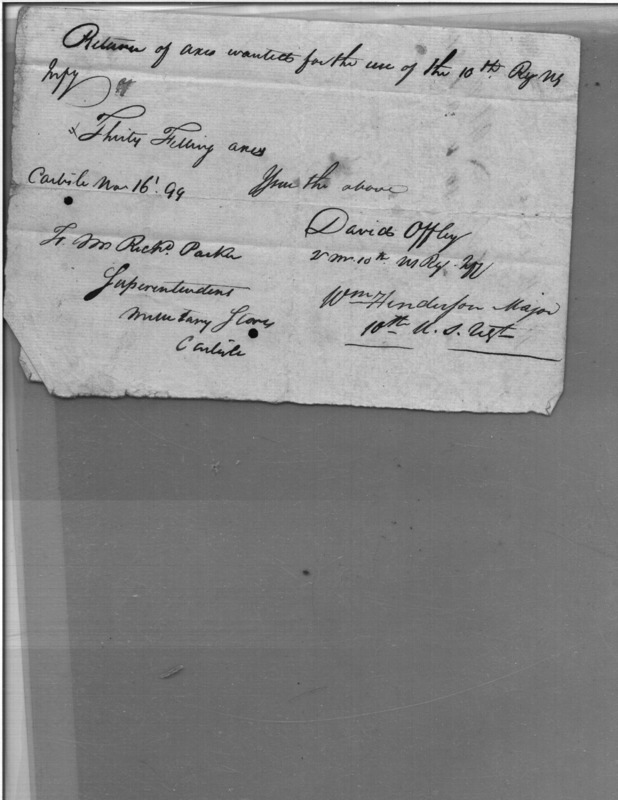 Return of axes wanted for the use of the 10th Reg US
Infy
Thirty Felling axes
Carlisle Nov 16t. 99 Issue the above
David Offley
10th US Reg.
Wm Henderson Major
10th U. S. Regt
To Mr Richd. Parker
Superentendent
Millitary Stores
Carlisle